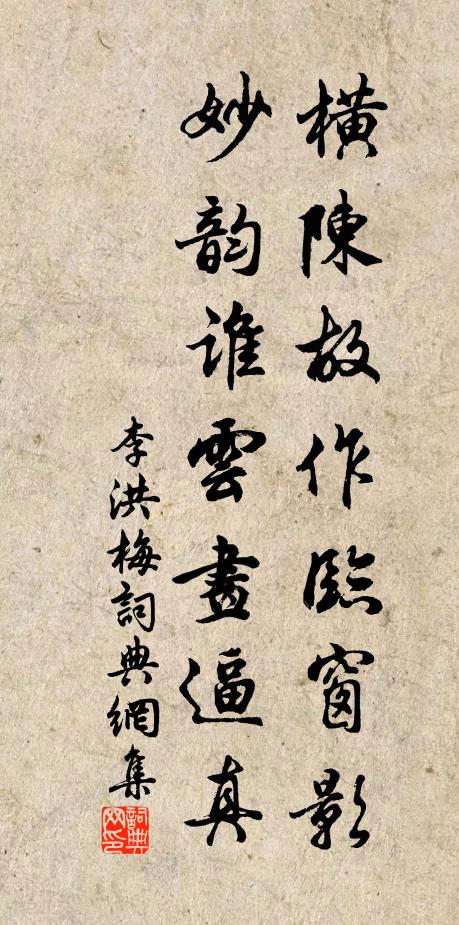 橫陳故作臨窗影
妙韵誰雲畫逼真
李洪梅詞典網集
詞典網印